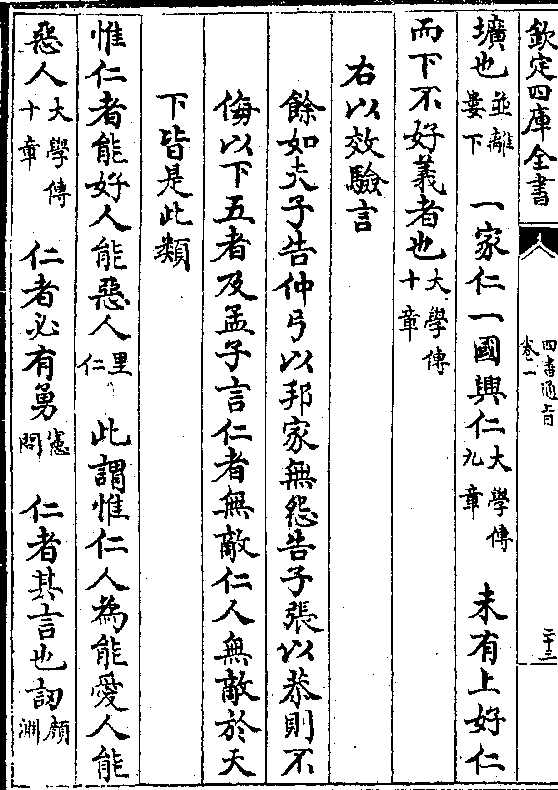 欽定四庫全書
四書通旨
卷二
二十三
壙也並離婁下 一家仁一國興仁大學傳九章 未有上好仁
而下不好義者也大學傳十章
右以效驗言
餘如夫子告仲弓以邦家無怨告子張以恭則不
侮以下五者及孟子言仁者無敵仁人無敵於天
下皆是此類
惟仁者能好人能惡人里仁 此謂惟仁人為能愛人能
惡人大學傳十章 仁者必有勇憲問 仁者其言也訒顔淵